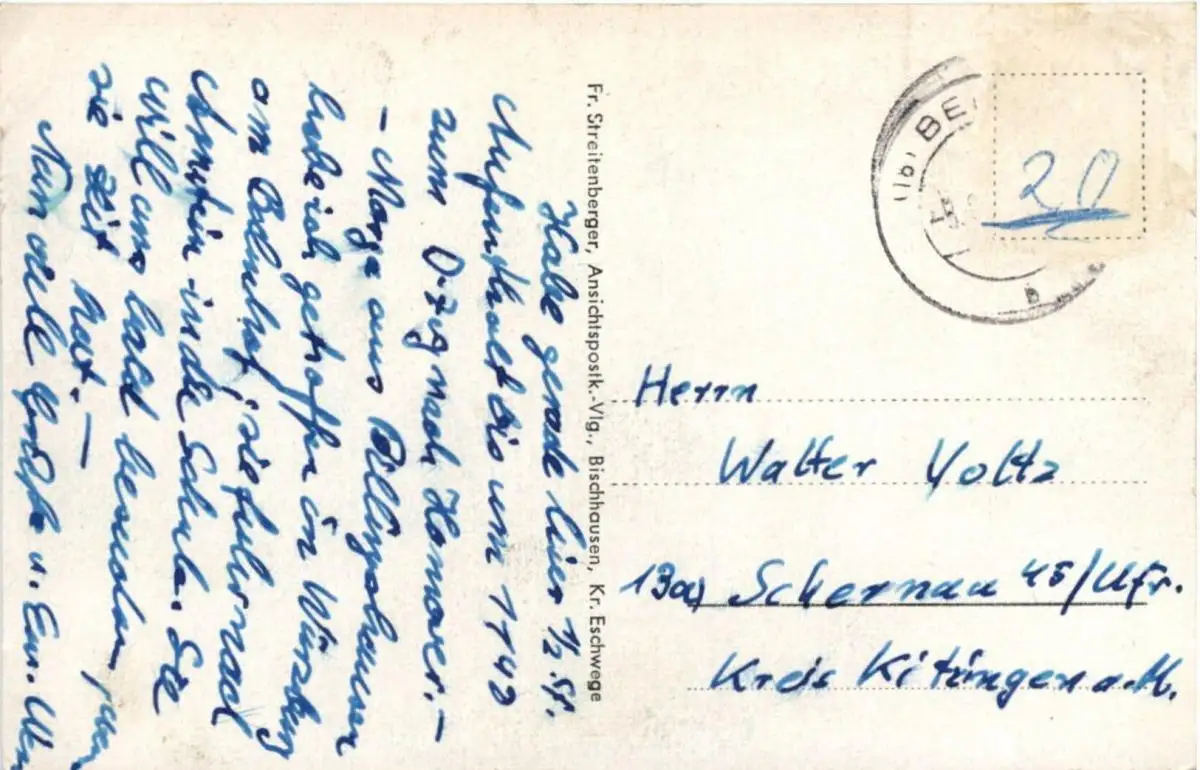 Habe gerade hier ½ St.
Aufenthalt bis um 1140
zum D-Zug nach Hannover. –
– Marga aus
habe ich getroffen in Würzburg
am Bahnhof, sie fuhr nach
in die Schule. Sie
will uns bald besuchen, wenn
sie Zeit hat. –
Nun viele Grüße u.
Fr. Streitenberger, Ansichtspostk.-Vlg., Bischhausen, Kr. Eschwege
(16) BE
20
a
Herrn
Walter Voltz
13a) Schernau 45/Ufr.
Kreis Kitzingen a.M.